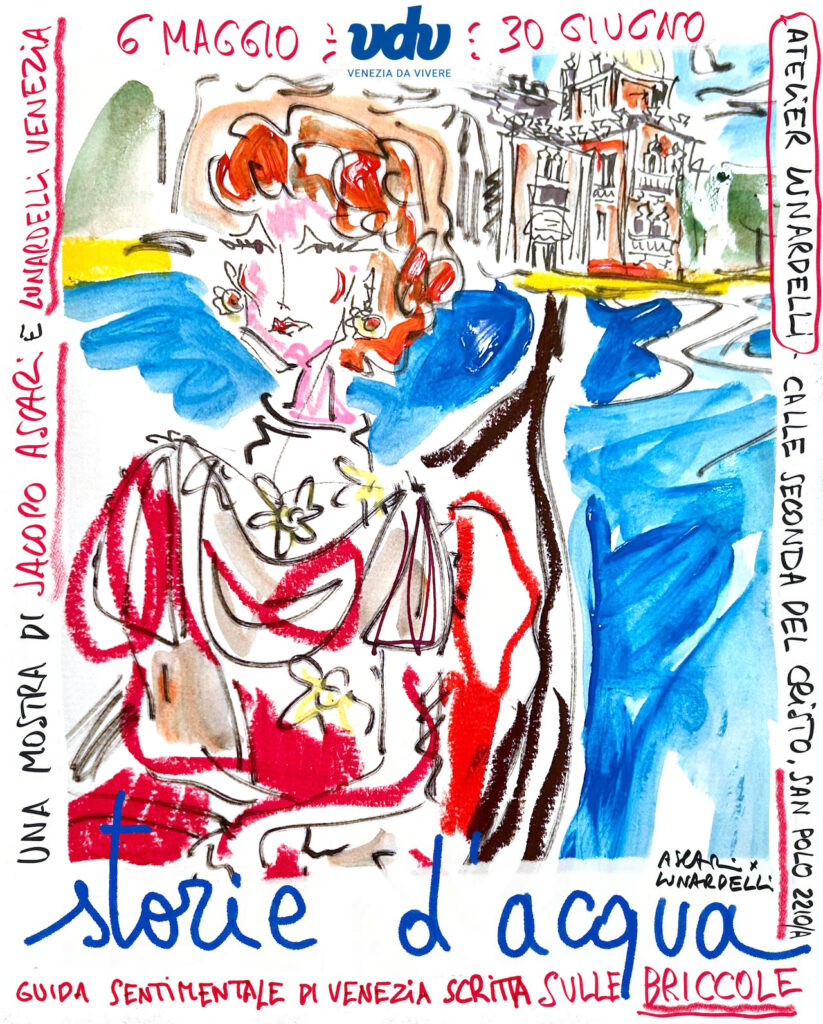 6 MAGGIO
vdv
VENEZIA DA VIVERE
30 GIUGNO
UNA MOSTRA DI JACOPO ASCARI E LUNARDELLI VENEZIA
ATELIER LUNARDELLI - CALLE SECONDA DEL CRISTO, SAN POLO 2210/A
ASCARI x
LUNARDELLI
storie d'acqua
GUIDA SENTIMENTALE DI VENEZIA SCRITTA SULLE BRICCOLE